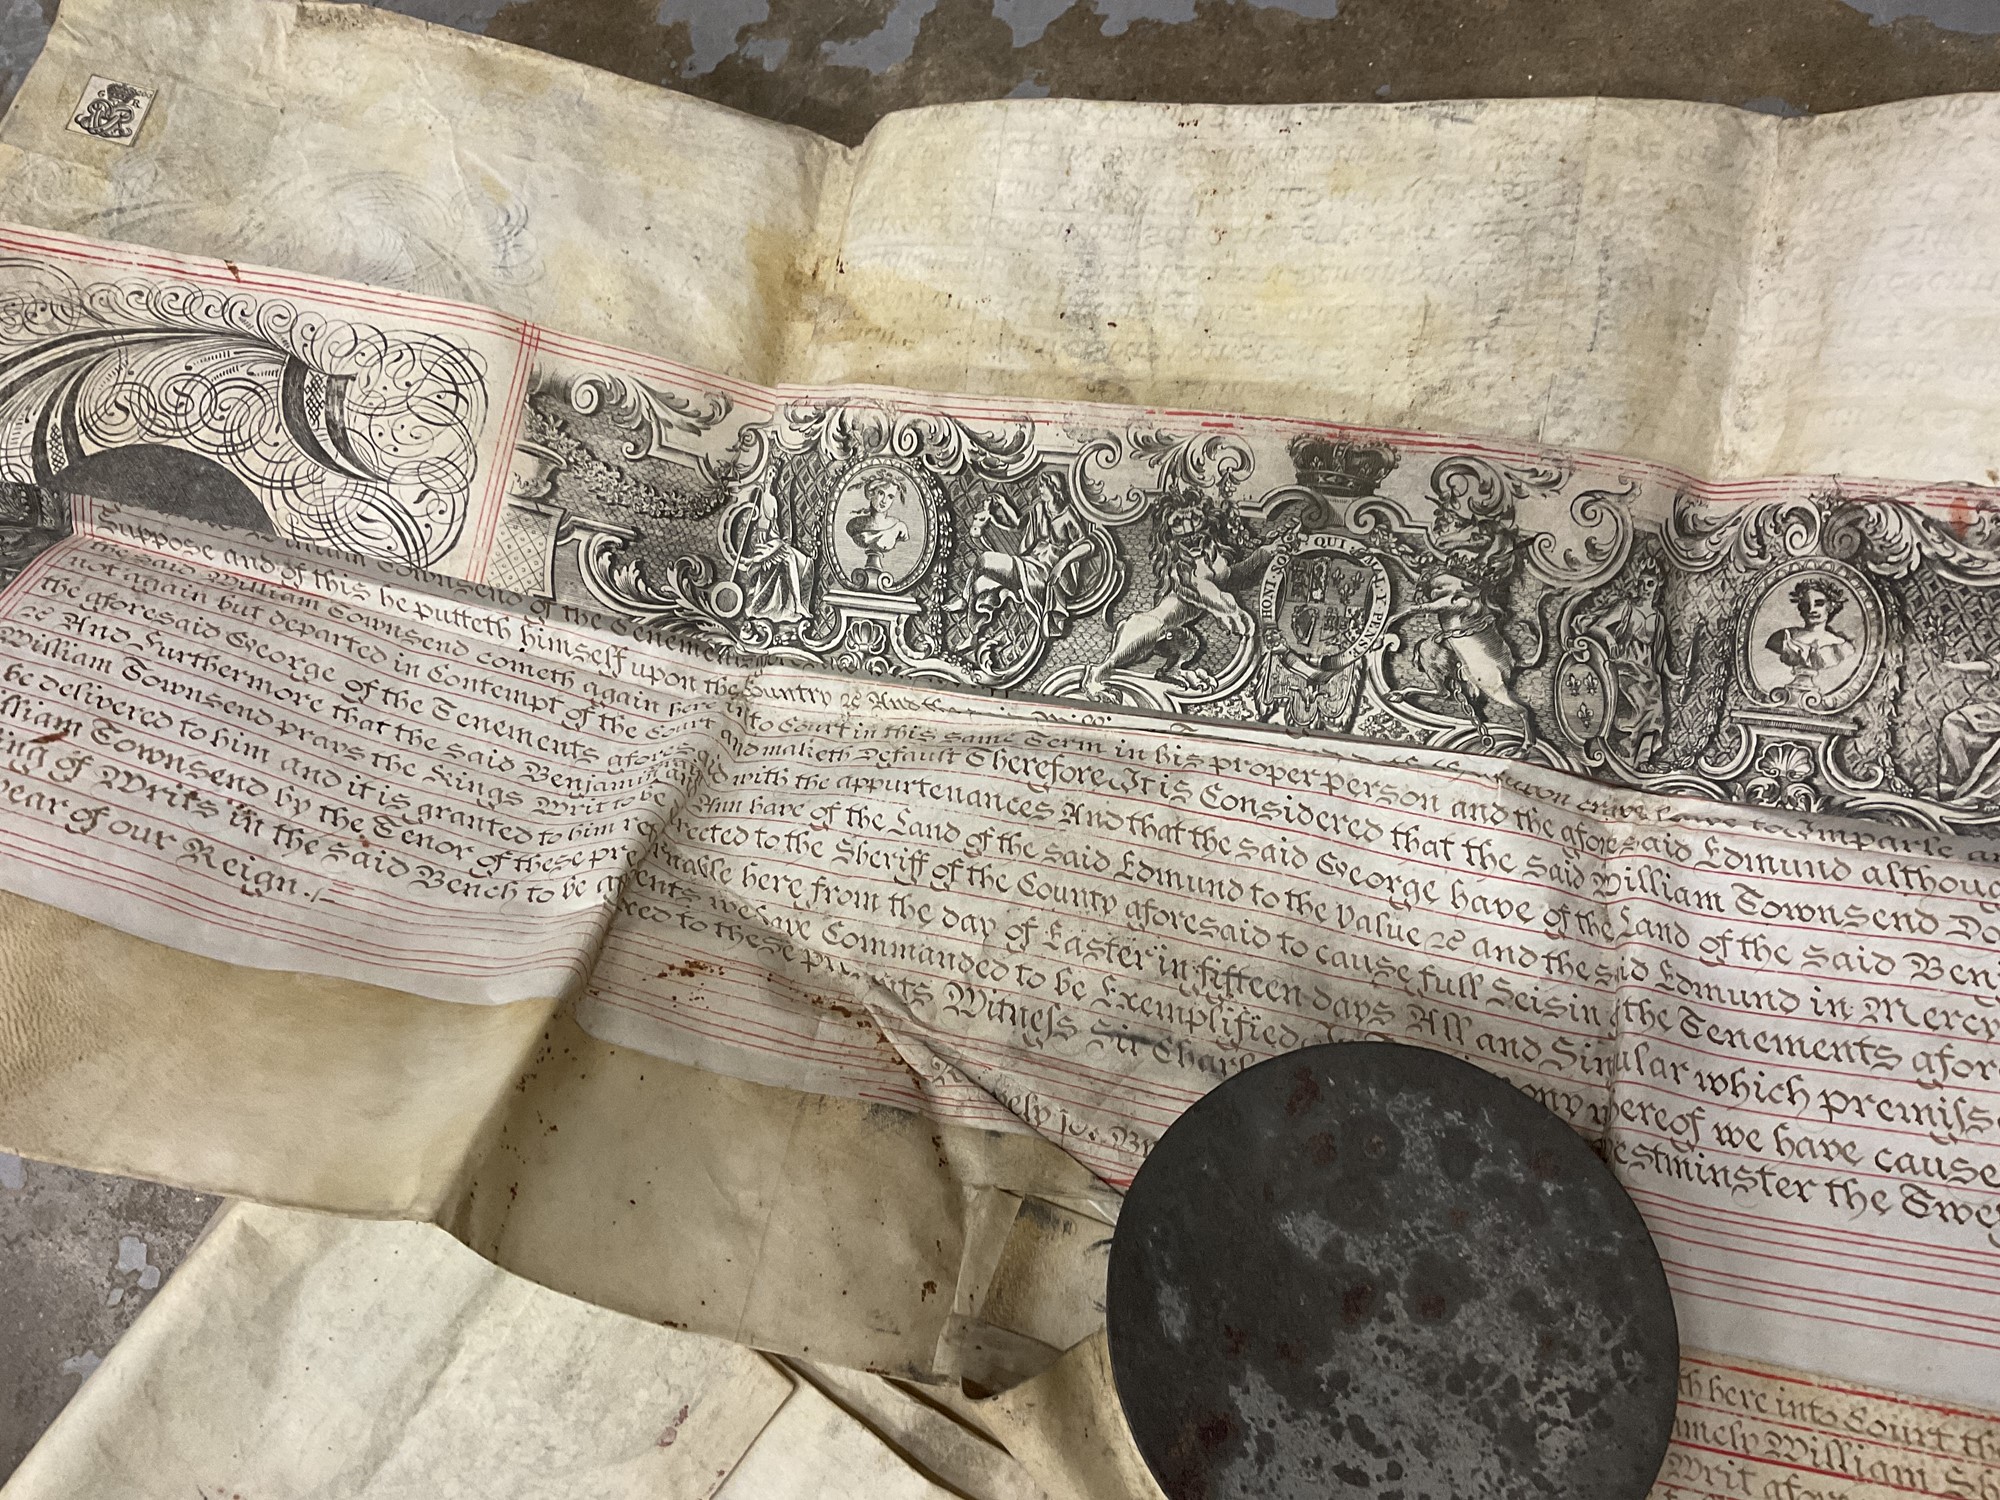 G R
HONI SOIT QUI MAL Y PENSE
William Townsend of the Tenements
Suppose and of this he putteth himself upon the Country &c And
crave leave to Imparle
the said William Townsend cometh again here into Court in this same Term in his proper person and the aforesaid Edmund althoug
not again but departed in Contempt of the Court and maketh Default Therefore It is Considered that the said William Townsend Do
the aforesaid George of the Tenements aforesaid with the appurtenances And that the said George have of the Land of the said Ben
&c And Furthermore that the said Benjamin and Ann have of the Land of the said Edmund to the value &c and the said Edmund in Mercy
William Townsend prays the Kings Writ to be Directed to the Sheriff of the County aforesaid to cause full Seisin the Tenements afor
be delivered to him and it is granted to him here from the day of Easter in fifteen days All and Singular which premiss
William Townsend by the Tenor of these presents we have Commanded to be Exemplified whereof we have cause
of Writs in the said Bench to be to these presents Witness Sir Westminster the
year of our Reign.
here into Court th
William Sh
Writ afor